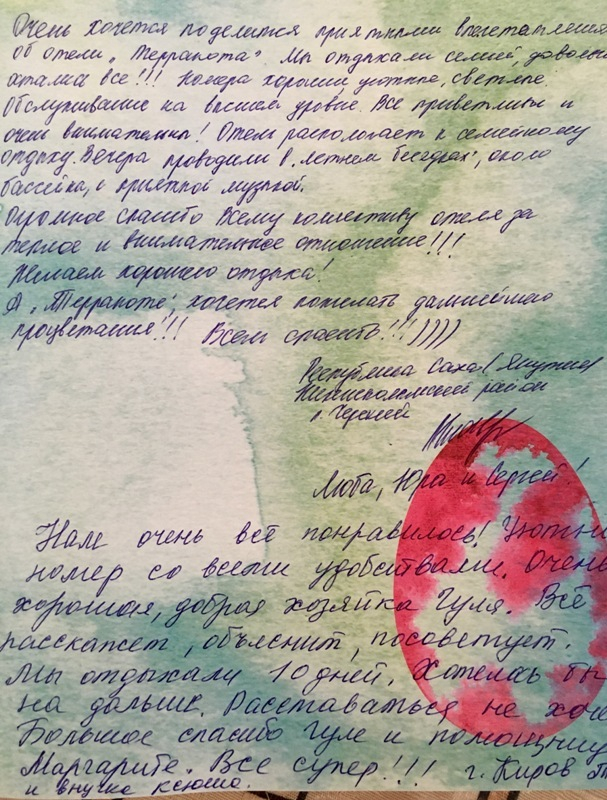 Очень хочется поделится приятными впечатления
об отели „Терракота“ Мы отдыхали семьей, доволны
остались все!!! Номера хорошие уютные, светлые.
Обслуживание на высшем уровне. Все приветливы и
очень внимательны! Отель распологает к семейному
отдыху. Вечера проводили в „летнем беседках“, около
бассейна, с приятной музыкой.
Огромное спасибо всему коллективу отеля за
теплое и внимательное отношение!!!
Желаем хорошего отдыха!
А „Терракоте“, хочется пожелать дальнейшего
процветания!!! Всем спасибо!!!))))
Республика Саха (Якутия
Нижнеколымский район
п. Черский
Люба, Юра и Сергей!
Нам очень всё понравилось! Уютный
номер со всеми удобствами. Очень
хорошая, добрая хозяйка Гуля. Всё
расскажет, объяснит, посоветует.
Мы отдыхали 10 дней. Хотелось бы
на дальше. Расставаться не хоче
Большое спасибо Гуле и помощниц
Маргарите. Все супер!!! г. Киров Т
и внучка Ксюша.